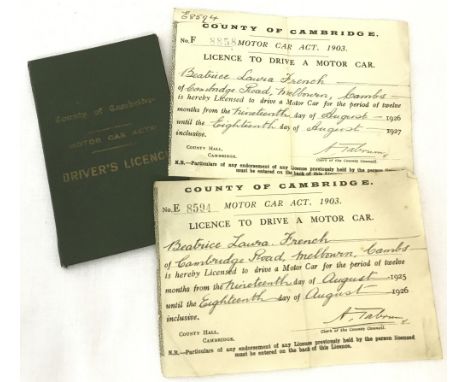 County of Cambridge
MOTOR CAR ACTS
DRIVER'S LICENCE
E8594
COUNTY OF CAMBRIDGE.
No. F 8858 MOTOR CAR ACT, 1903.
LICENCE TO DRIVE A MOTOR CAR.
Beatrice Laura French
of Cambridge Road, Melbourn, Cambs
is hereby Licensed to drive a Motor Car for the period of twelve
months from the Nineteenth day of August 1926
until the Eighteenth day of August 1927
inclusive.
A. Tabrum
COUNTY HALL,
CAMBRIDGE.
Clerk of the County Council.
N.B.—Particulars of any endorsement of any License previously held by the person
must be entered on the back of this
COUNTY OF CAMBRIDGE.
No. E 8594 MOTOR CAR ACT, 1903.
LICENCE TO DRIVE A MOTOR CAR.
Beatrice Laura French
of Cambridge Road, Melbourn, Cambs
is hereby Licensed to drive a Motor Car for the period of twelve
months from the Nineteenth day of August 1925
until the Eighteenth day of August 1926
inclusive.
A. Tabrum
COUNTY HALL,
CAMBRIDGE.
Clerk of the County Council.
N.B.—Particulars of any endorsement of any License previously held by the person licensed
must be entered on the back of this Licence.